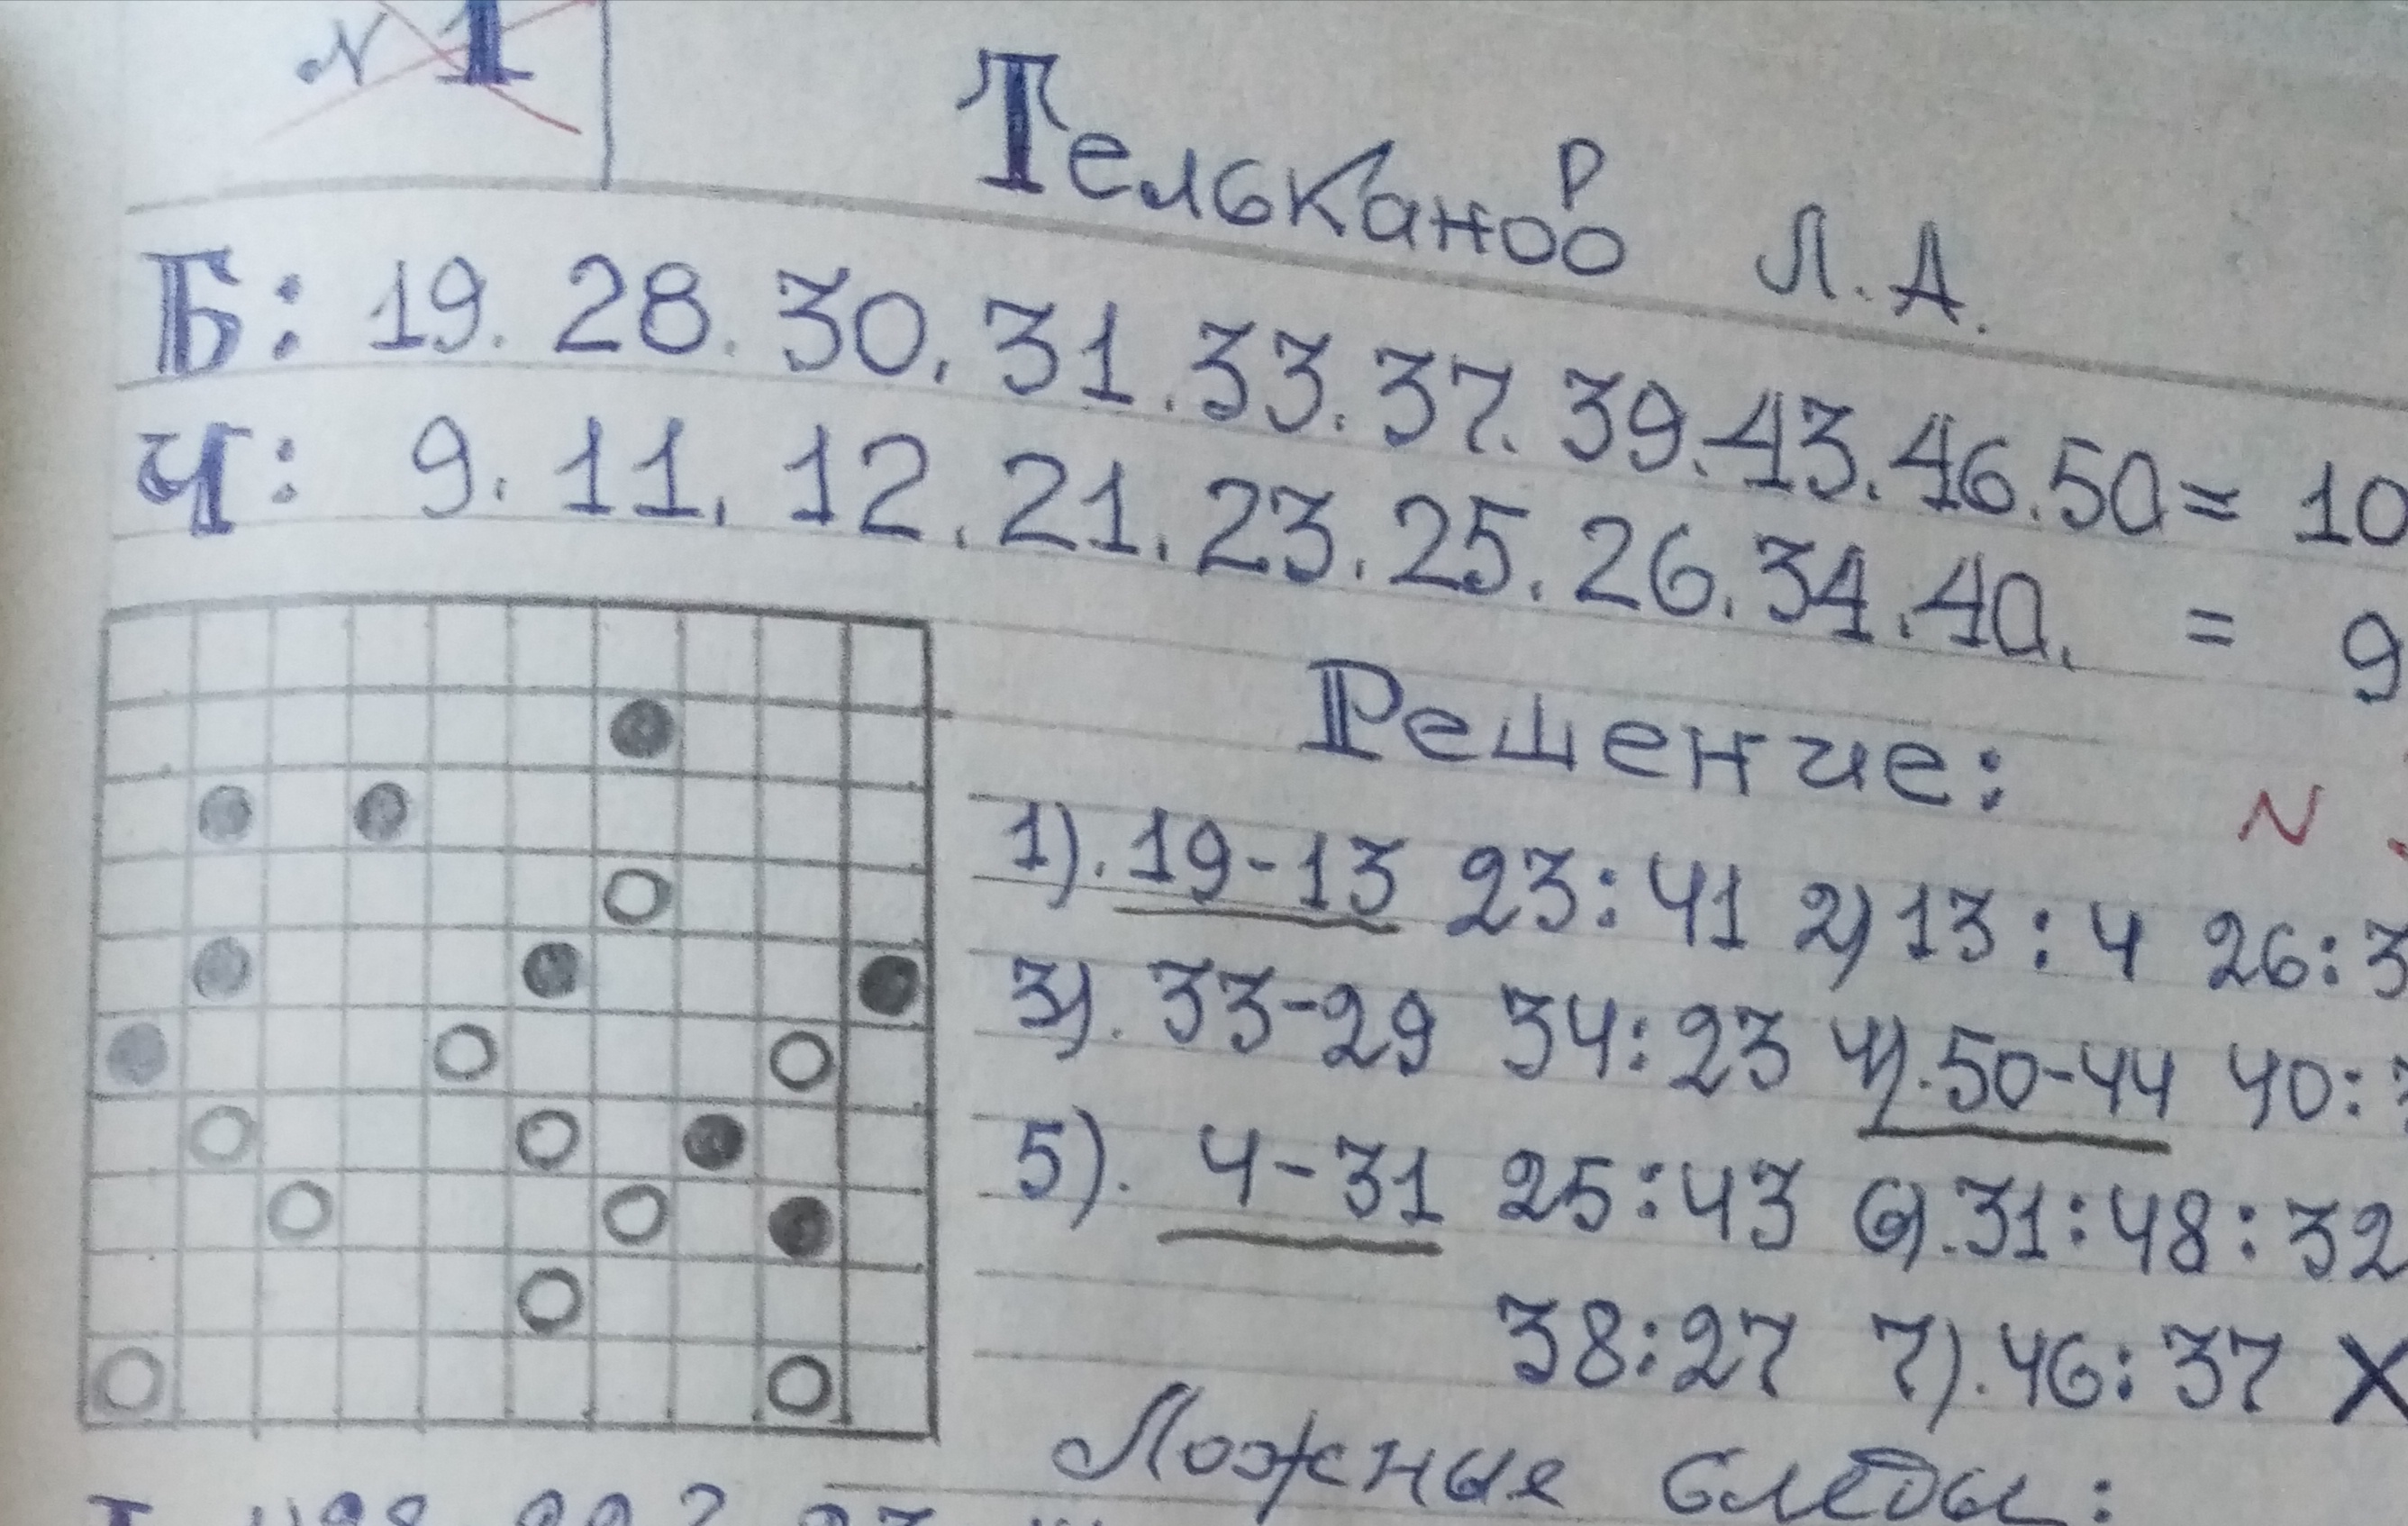 № 1
Тельканов Р Л.А.
Б: 19. 28. 30. 31. 33. 37. 39. 43. 46. 50 = 10
Ч: 9. 11. 12. 21. 23. 25. 26. 34. 40. = 9
Решение:
N
1). 19-13 23:41 2) 13:4 26:3
3). 33-29 34:23 4). 50-44 40:
5). 4-31 25:43 6). 31:48:32
38:27 7). 46:37 X
Ложные следы: